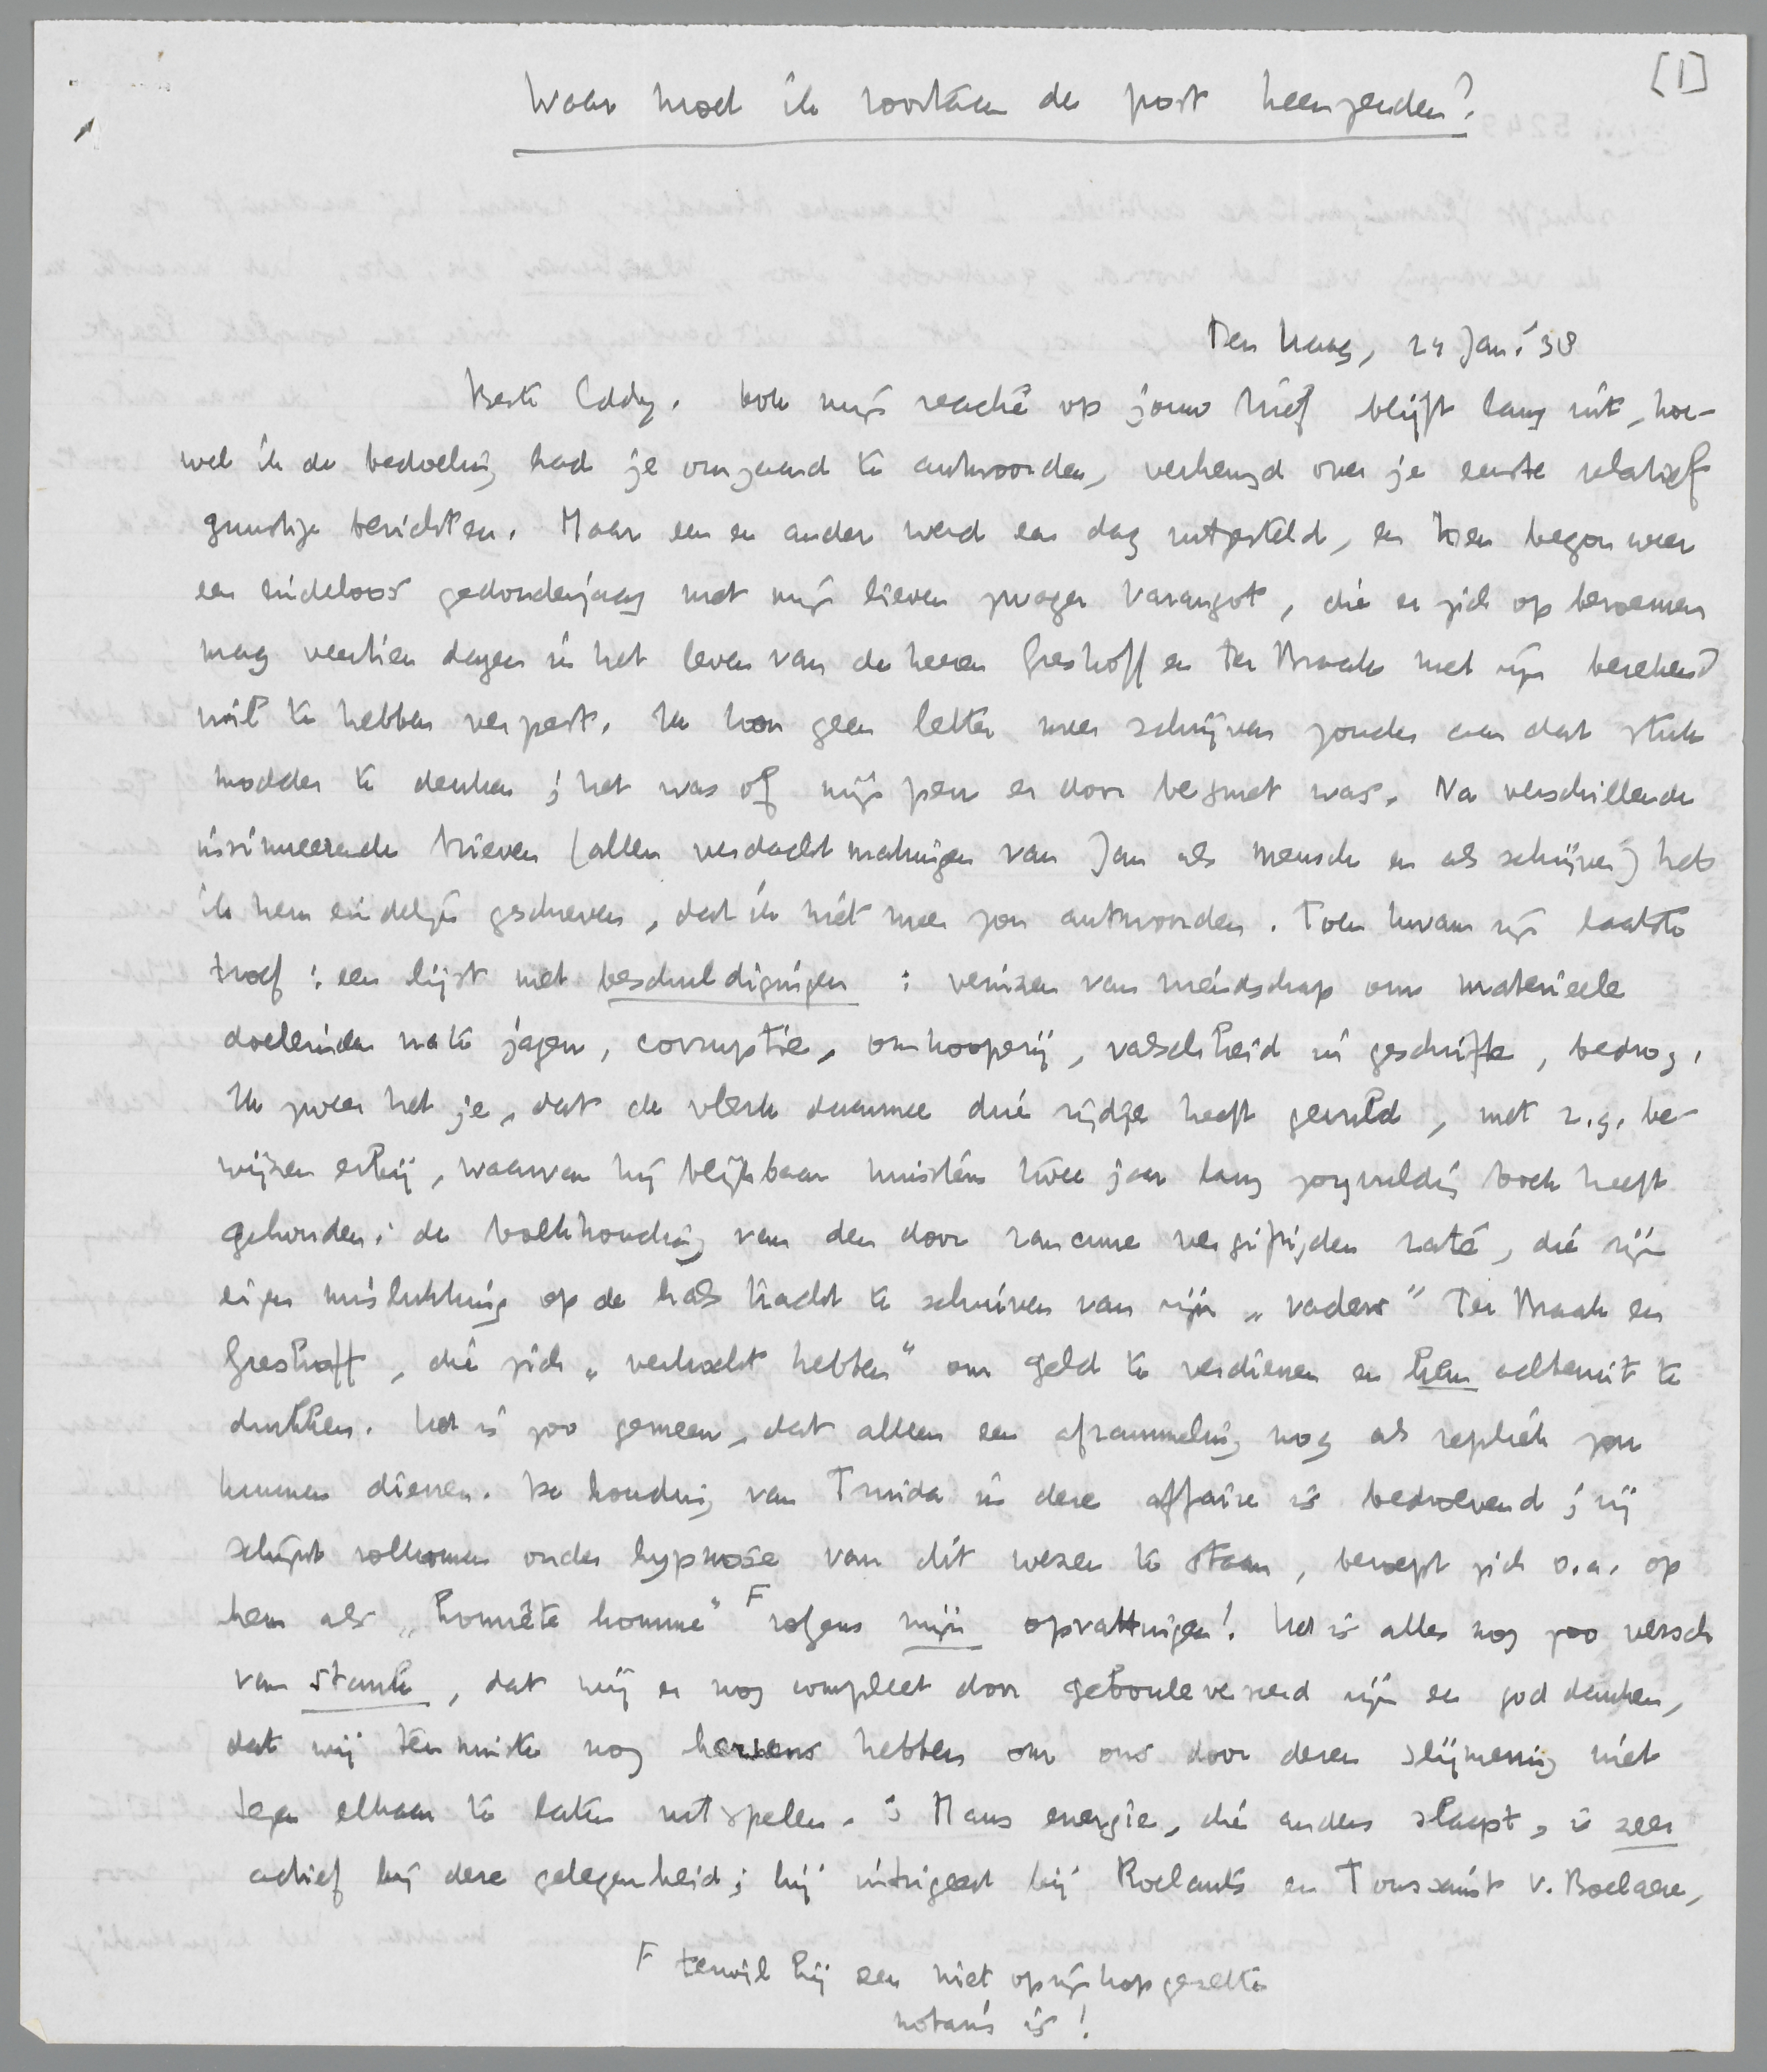 [1]
Waar moet ik voortaan de post heenzenden?
Den Haag, 24 Jan. '38
Beste Eddy. Ook mijn reactie op jouw brief blijft lang uit, hoe-
wel ik de bedoeling had je omgaand te antwoorden, verheugd over je eerste relatief
gunstige berichten. Maar een en ander werd een dag uitgesteld, en toen begon weer
een eindeloos gedonderjaag met mijn lieven zwager Varangot, die er zich op beroemen
mag veertien dagen in het leven van de heeren Greshoff en Ter Braak met zijn berekend
vuil te hebben verpest. Ik kon geen letter meer schrijven zonder aan dat stuk
modder te denken; het was of mijn pen er door besmet was. Na verschillende
insinueerende brieven (allen verdachtmakingen van Jan als mensch en als schrijver) heb
ik hem eindelijk geschreven, dat ik niet meer zou antwoorden. Toen kwam zijn laatste
troef: een lijst met beschuldigingen: veinzen van vriendschap om materieele
doeleinden na te jagen, corruptie, omkooperij, valschheid in geschrifte, bedrog.
Ik zweer het je, dat de vlerk daarmee drie zijdjes heeft gevuld, met z.g. be-
wijzen erbij, waarvan hij blijkbaar minstens twee jaar lang zorgvuldig boek heeft
gehouden: de boekhouding van den door rancune vergiftigden raté, die zijn
eigen mislukking op de hals tracht te schuiven van zijn „vaders" Ter Braak en
Greshoff, die zich „verkocht hebben" om geld te verdienen en hem achteruit te
drukken. Het is zoo gemeen, dat alleen een aframmeling nog als repliek zou
kunnen dienen. De houding van Truida in deze affaire is bedroevend; zij
schijnt volkomen onder hypnose van dit wezen te staan, beroept zich o.a. op
hem als „honnête homme" F volgens mijn opvattingen! Het is alles nog zoo versch
van stank, dat wij er nog compleet door gebouleverseerd zijn en god danken,
dat wij tenminste nog hersens hebben om ons door dezen slijmerig niet
tegen elkaar te laten uitspelen. 's Mans energie, die anders slaapt, is zeer
actief bij deze gelegenheid; hij intrigeert bij Roelants en Toussaint v. Boelaere,
F terwijl hij een niet op zijn kop gezette
notaris is!